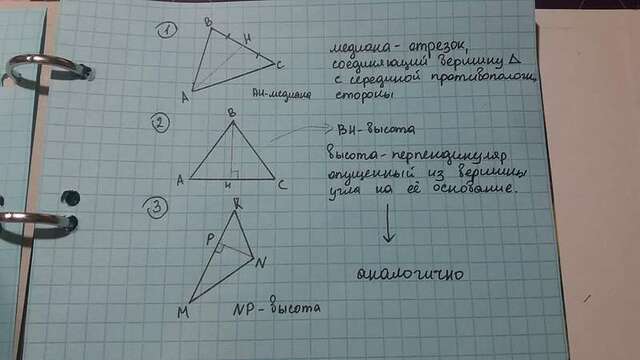 1
B
H
C
A
АН-медиана
медиана - отрезок,
соединяющий вершину Δ
с серединой противополож.
стороны
2
B
A
H
C
ВН-высота
высота-перпендикуляр
опущенный из вершины
угла на её основание.
аналогично
3
K
P
N
M
NP-высота